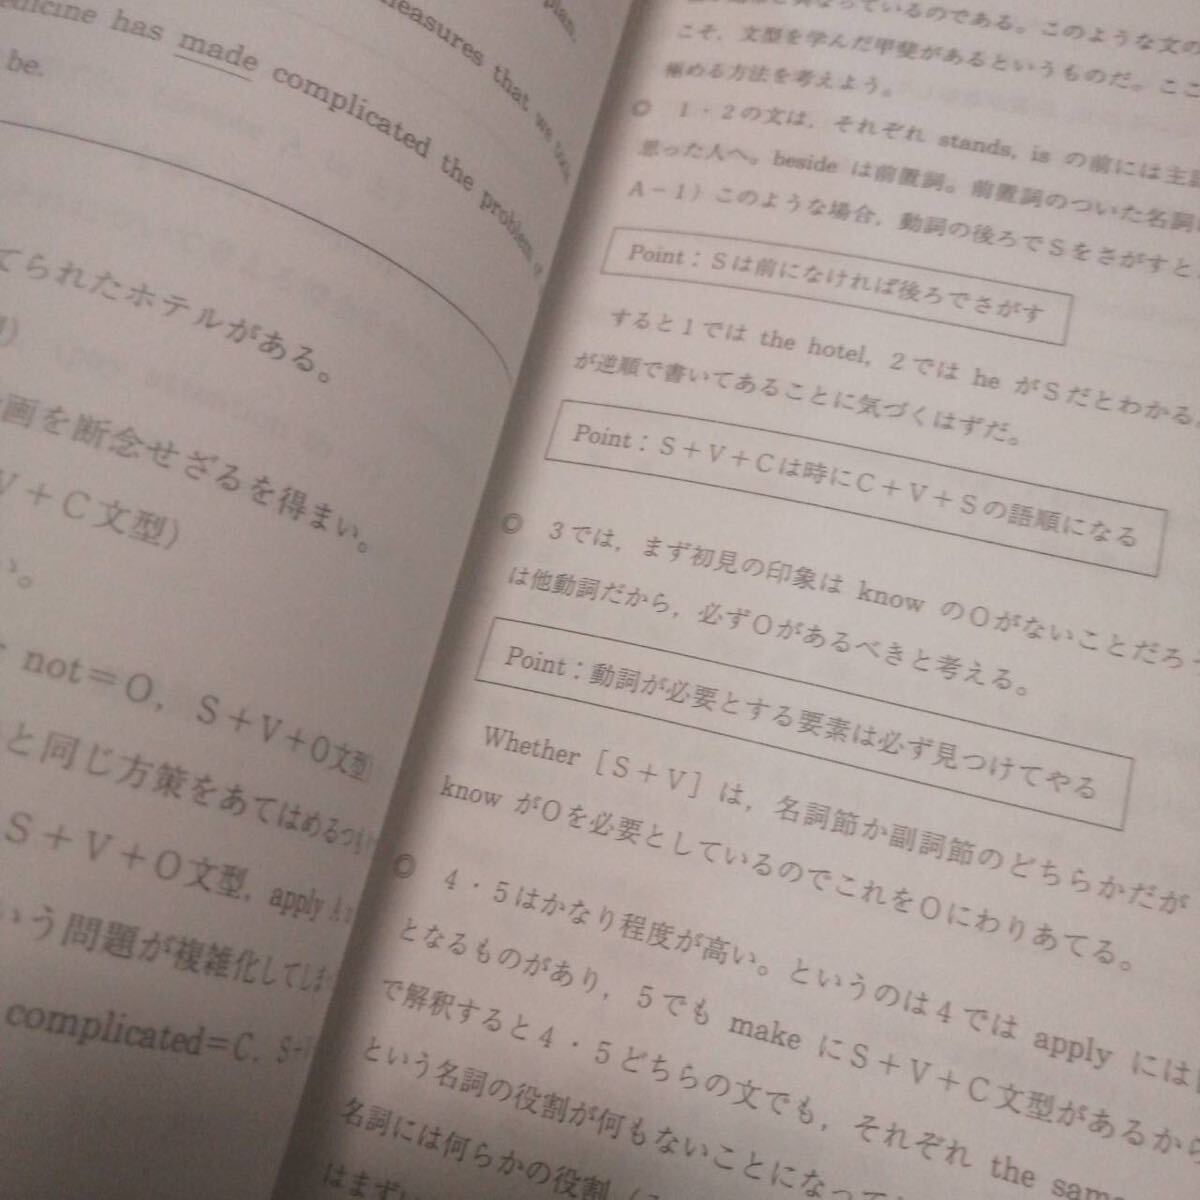 plan.
measures that we took
medicine has made complicated the problem
be.
てられたホテルがある。
画を断念せざるを得まい。
V+C文型)
い。
not=O, S+V+O文型
と同じ方策をあてはめるつ
S+V+O文型, apply
いう問題が複雑化してしま
complicated=C, S+
っているのである。このような文の
こそ、文型を学んだ甲斐があるというものだ。ここ
極める方法を考えよう。
◎ 1・2の文は, それぞれ stands, is の前には主
思った人へ。beside は前置詞。前置詞のついた名詞
A-1) このような場合, 動詞の後ろでSをさがすと
Point:Sは前になければ後ろでさがす
すると1では the hotel, 2では he がSだとわかる。
が逆順で書いてあることに気づくはずだ。
Point:S+V+Cは時にC+V+Sの語順になる
◎ 3では, まず初見の印象は know のOがないことだろう
は他動詞だから, 必ずOがあるべきと考える。
Point:動詞が必要とする要素は必ず見つけてやる
Whether [S+V] は, 名詞節か副詞節のどちらかだが
know がOを必要としているのでこれをOにわりあてる。
◎ 4・5はかなり程度が高い。というのは4では apply には
となるものがあり, 5でも make にS+V+C文型があるから
で解釈すると4・5どちらの文でも, それぞれ the same
という名詞の役割が何もないことになって
名詞には何らかの役割
はまず